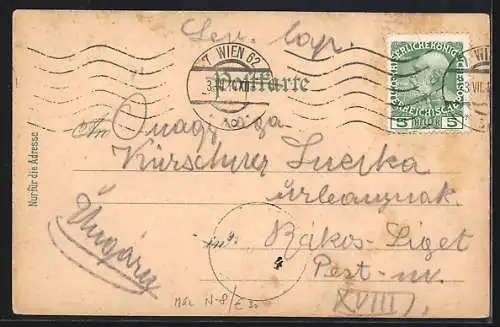 Lev. lap.
7 WIEN 62
Postkarte
KAISERLICHE KÖNIGLICHE ÖSTERREICHISCHE POST
5 HELLER 5
Nur für die Adresse
An Őnagysága
Kürschner Lucika
úrleánynak.
in Rákos-Liget
Pest-m.
XVIII
Ungárn